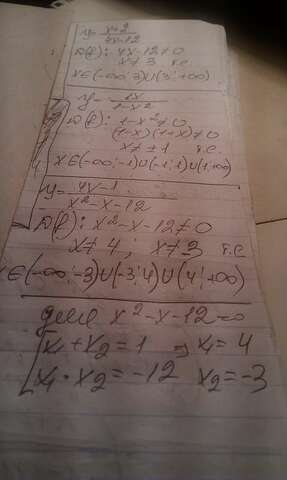 y = x+2 / 4x-12
D(f): 4x-12≠0
x≠3 т.е.
x∈(-∞;3)∪(3;+∞)
y = 2x / 1-x²
D(f): 1-x²≠0
(1-x)(1+x)≠0
x≠±1 т.е.
x∈(-∞;-1)∪(-1;1)∪(1;+∞)
y = 4x-1 / x²-x-12
D(f): x²-x-12≠0
x≠4; x≠-3 т.е
x∈(-∞;-3)∪(-3;4)∪(4;+∞)
далее x²-x-12=0
x₁+x₂=1 ⇒ x₁=4
x₁·x₂=-12 x₂=-3